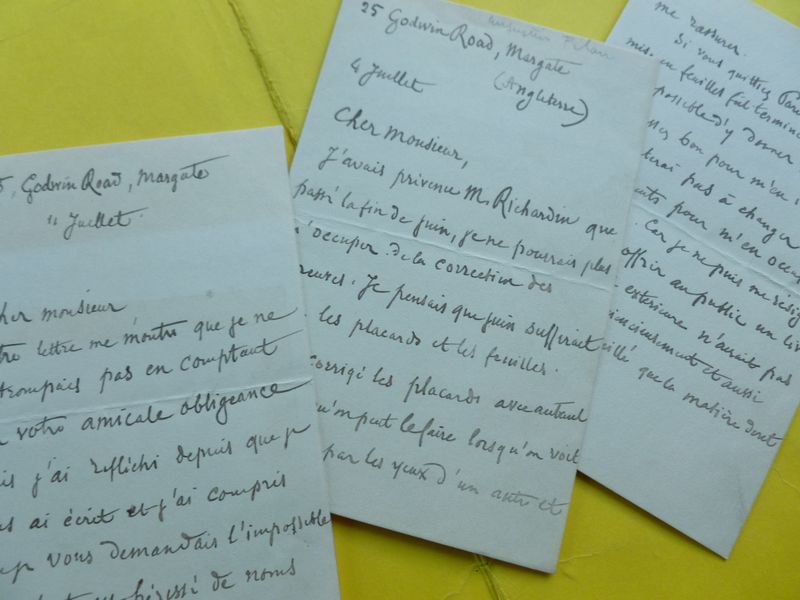 5, Godwin Road, Margate
11 Juillet.
cher monsieur
tre lettre me montre que je ne
trompais pas en comptant
votre amicale obligeance
is j'ai réfléchi depuis que je
s ai écrit et j'ai compris
vous demandais l'impossible
hérissé de noms
25 Godwin Road, Margate
(Angleterre)
4 Juillet
Cher Monsieur,
J'avais prévenu M. Richardin que
passé la fin de juin, je ne pourrais plus
m'occuper de la correction des
reuves. Je pensais que juin suffirait
les placards et les feuilles.
corrigé les placards avec autant
qu'on peut le faire lorsqu'on voit
par les yeux d'un autre et
me rassurer.
Si vous quittiez Pari
mise en feuilles fût termin
possible d'y donner
ssez bon pour m'en
terai pas à changer
pour m'en occup
Car je ne puis me résig
offrir au public un liv
extérieure n'aurait pas
consciencieusement et aussi
illé que la matière dont